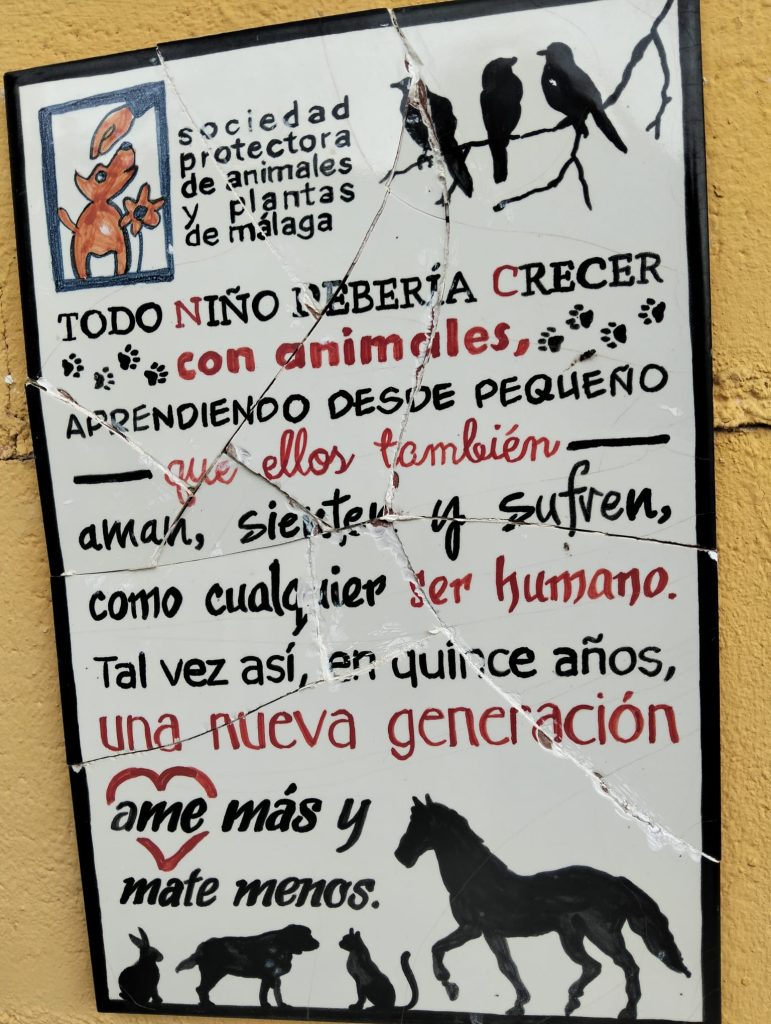 sociedad
protectora
de animales
y plantas
de málaga
TODO NIÑO DEBERÍA CRECER
con animales,
APRENDIENDO DESDE PEQUEÑO
que ellos también
aman, sienten y sufren,
como cualquier ser humano.
Tal vez así, en quince años,
una nueva generación
ame más y
mate menos.